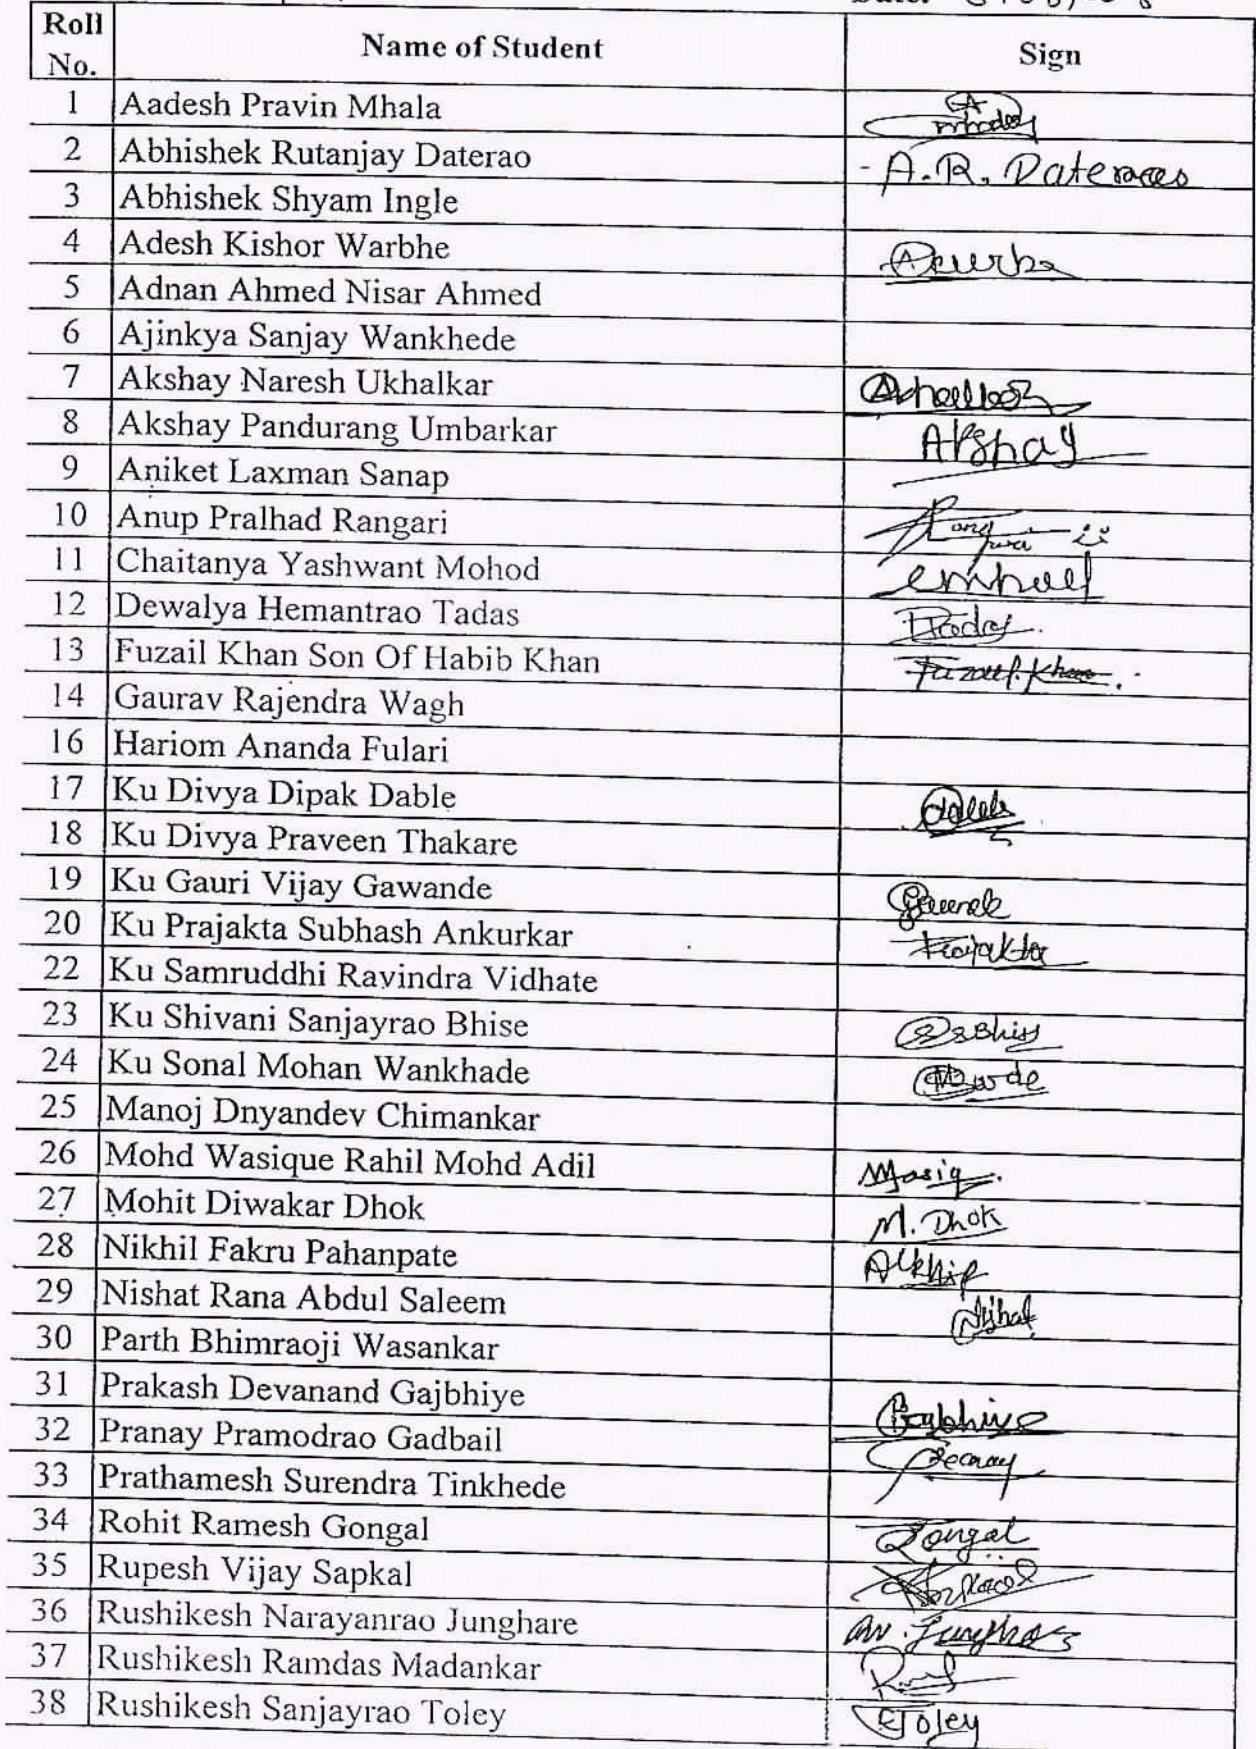 Roll No.
Name of Student
Sign
1 Aadesh Pravin Mhala
2 Abhishek Rutanjay Daterao A.R. Daterao
3 Abhishek Shyam Ingle
4 Adesh Kishor Warbhe
5 Adnan Ahmed Nisar Ahmed
6 Ajinkya Sanjay Wankhede
7 Akshay Naresh Ukhalkar
8 Akshay Pandurang Umbarkar Akshay
9 Aniket Laxman Sanap
10 Anup Pralhad Rangari
11 Chaitanya Yashwant Mohod
12 Dewalya Hemantrao Tadas
13 Fuzail Khan Son Of Habib Khan Fuzail.Khan.
14 Gaurav Rajendra Wagh
16 Hariom Ananda Fulari
17 Ku Divya Dipak Dable
18 Ku Divya Praveen Thakare
19 Ku Gauri Vijay Gawande
20 Ku Prajakta Subhash Ankurkar Prajakta
22 Ku Samruddhi Ravindra Vidhate
23 Ku Shivani Sanjayrao Bhise
24 Ku Sonal Mohan Wankhade
25 Manoj Dnyandev Chimankar
26 Mohd Wasique Rahil Mohd Adil
27 Mohit Diwakar Dhok M. Dhok
28 Nikhil Fakru Pahanpate
29 Nishat Rana Abdul Saleem Nishat
30 Parth Bhimraoji Wasankar
31 Prakash Devanand Gajbhiye
32 Pranay Pramodrao Gadbail
33 Prathamesh Surendra Tinkhede
34 Rohit Ramesh Gongal Gongal
35 Rupesh Vijay Sapkal
36 Rushikesh Narayanrao Junghare
37 Rushikesh Ramdas Madankar
38 Rushikesh Sanjayrao Toley Toley